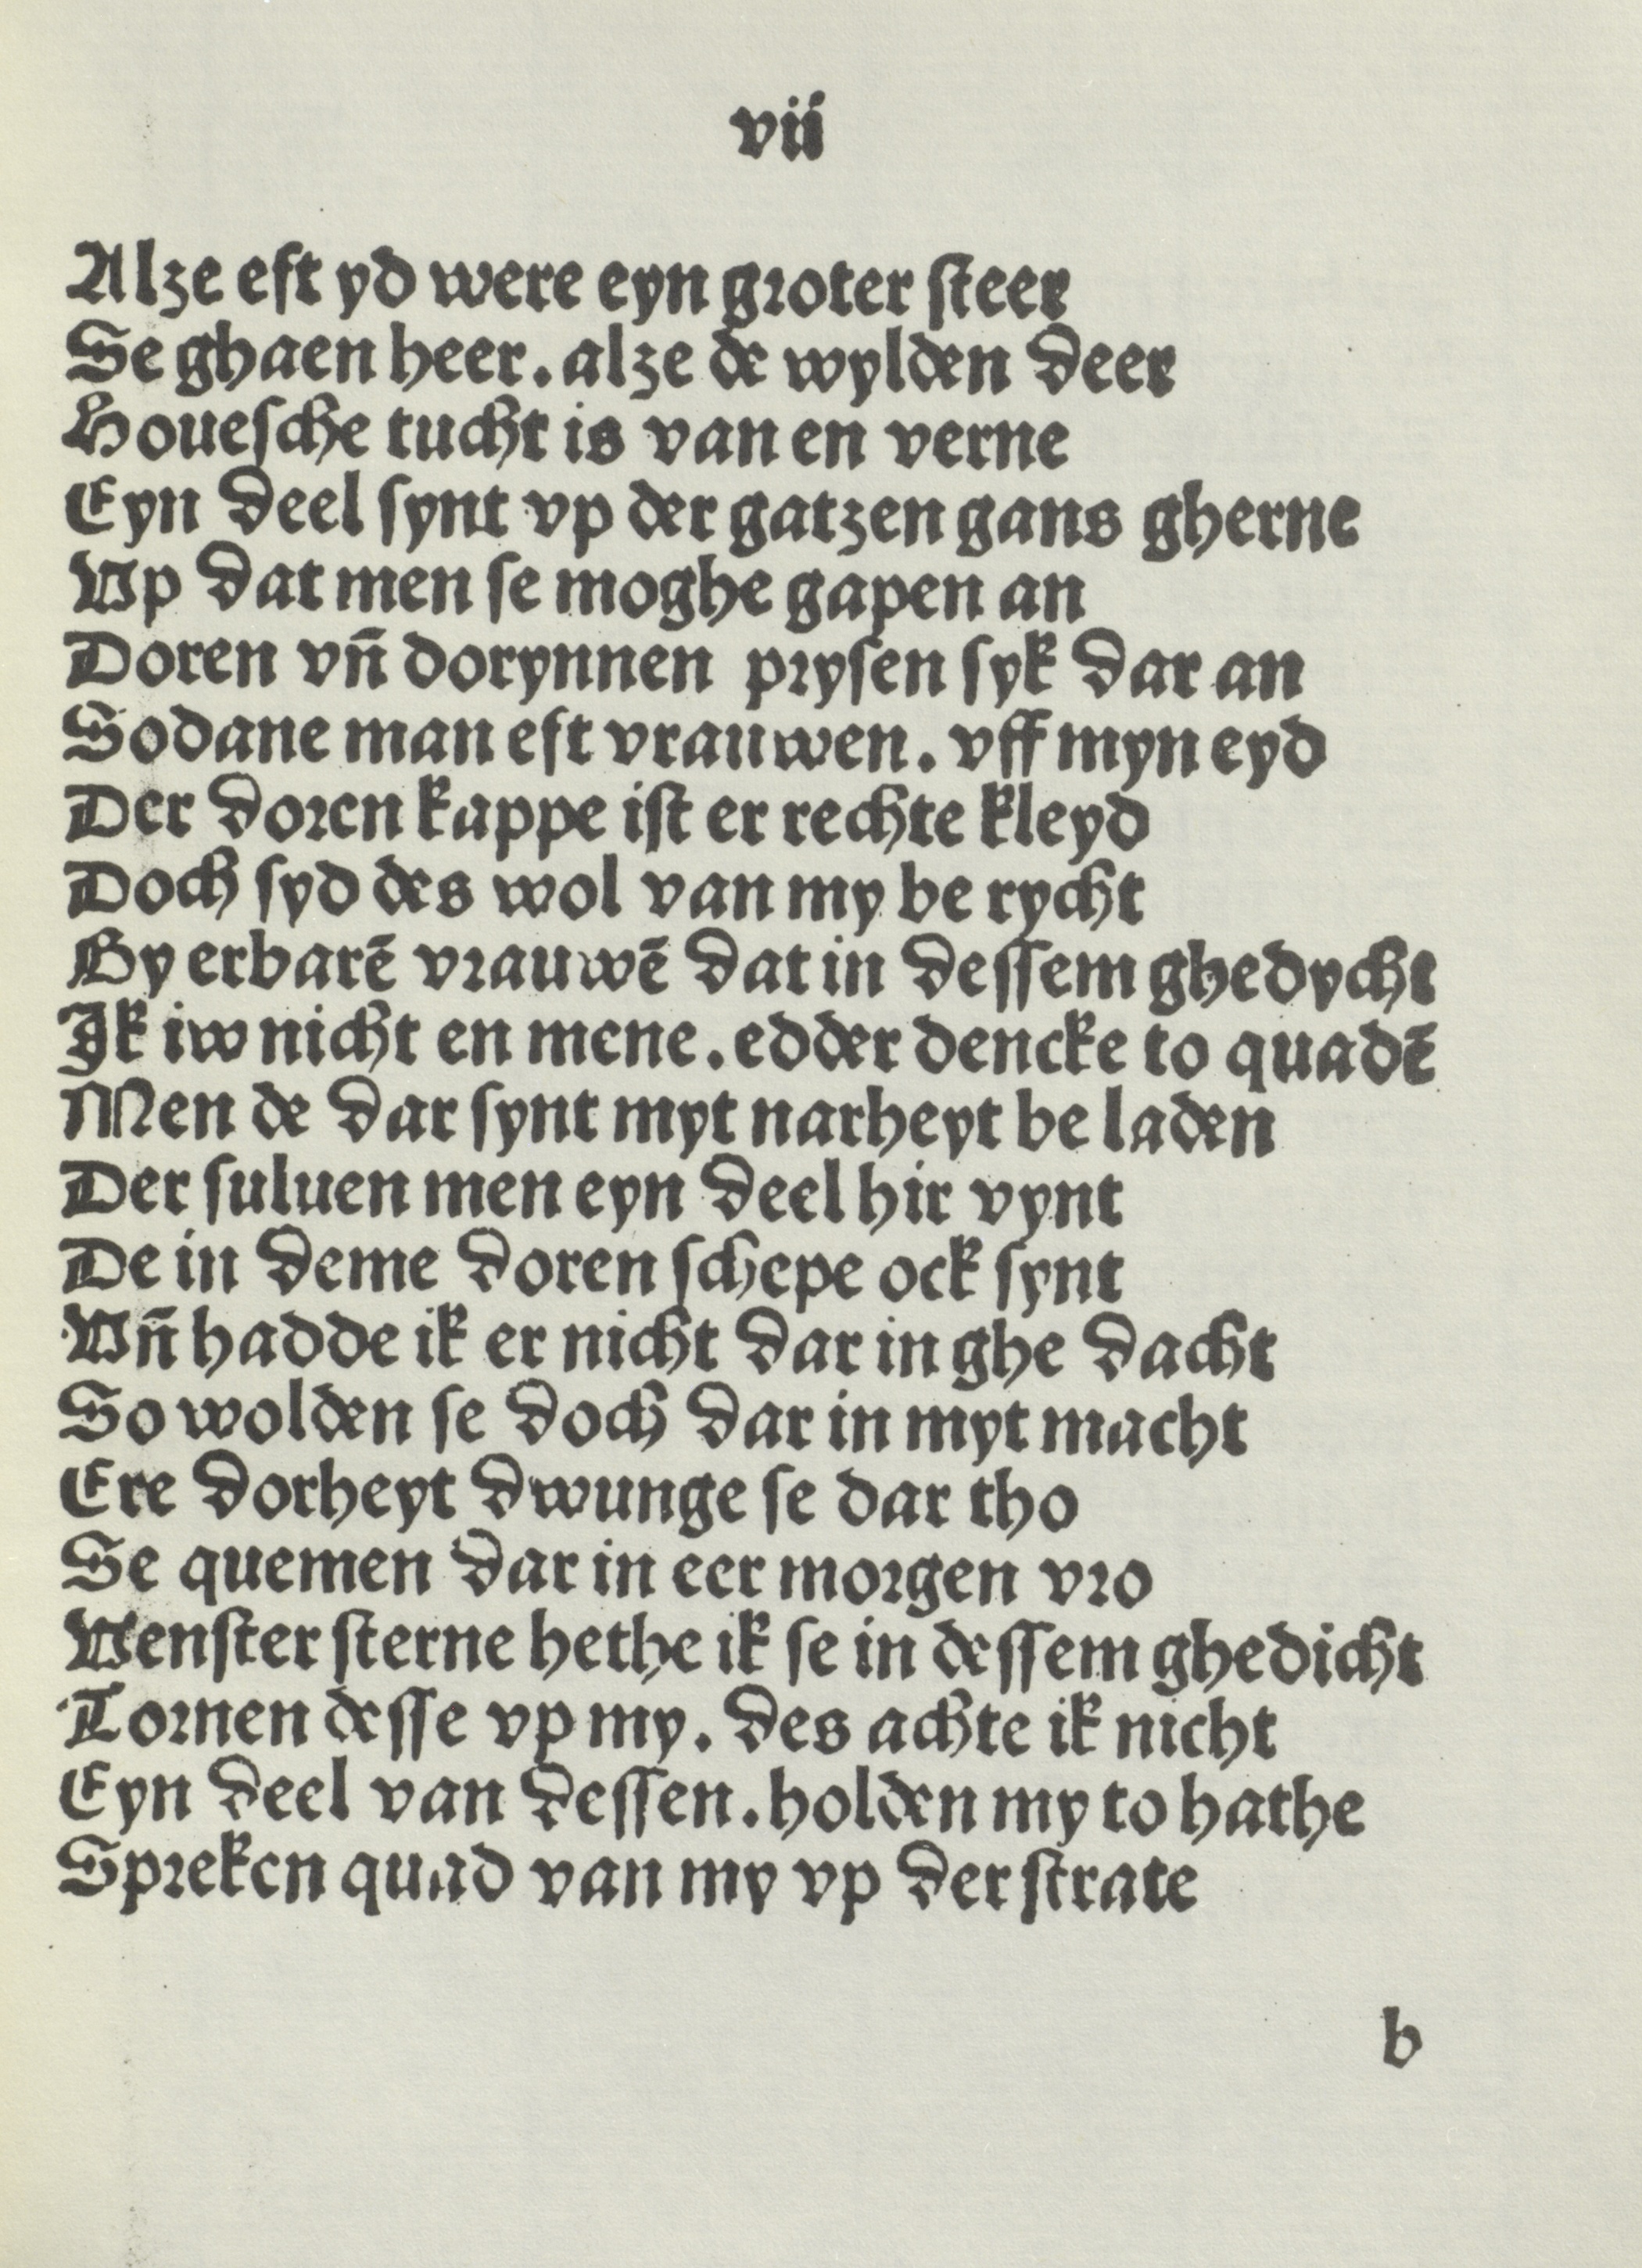 vii
Alze eft yd were eyn groter ſteer
Se ghaen heer. alze de wylden deer
Houeſche tucht is van en verne
Eyn deel ſynt vp der gatzen gans gherne
Vp dat men ſe moghe gapen an
Doren vn̄ dorynnen pryſen ſyk dar an
Sodane man eft vrauwen. vff myn eyd
Der doren kappe iſt er rechte kleyd
Doch ſyd des wol van my be rycht
By erbarē vrauwē dat in deſſem ghedycht
Ik iw nicht en mene. edder dencke to quadē
Men de dar ſynt myt narheyt be laden
Der ſuluen men eyn deel hir vynt
De in deme doren ſchepe ock ſynt
Vn̄ hadde ik er nicht dar in ghe dacht
So wolden ſe doch dar in myt macht
Ere dorheyt dwunge ſe dar tho
Se quemen dar in eer morgen vro
Venſter ſterne hethe ik ſe in deſſem ghedicht
Tornen deſſe vp my. des achte ik nicht
Eyn deel van deſſen. holden my to hathe
Spreken quad van my vp der ſtrate
b